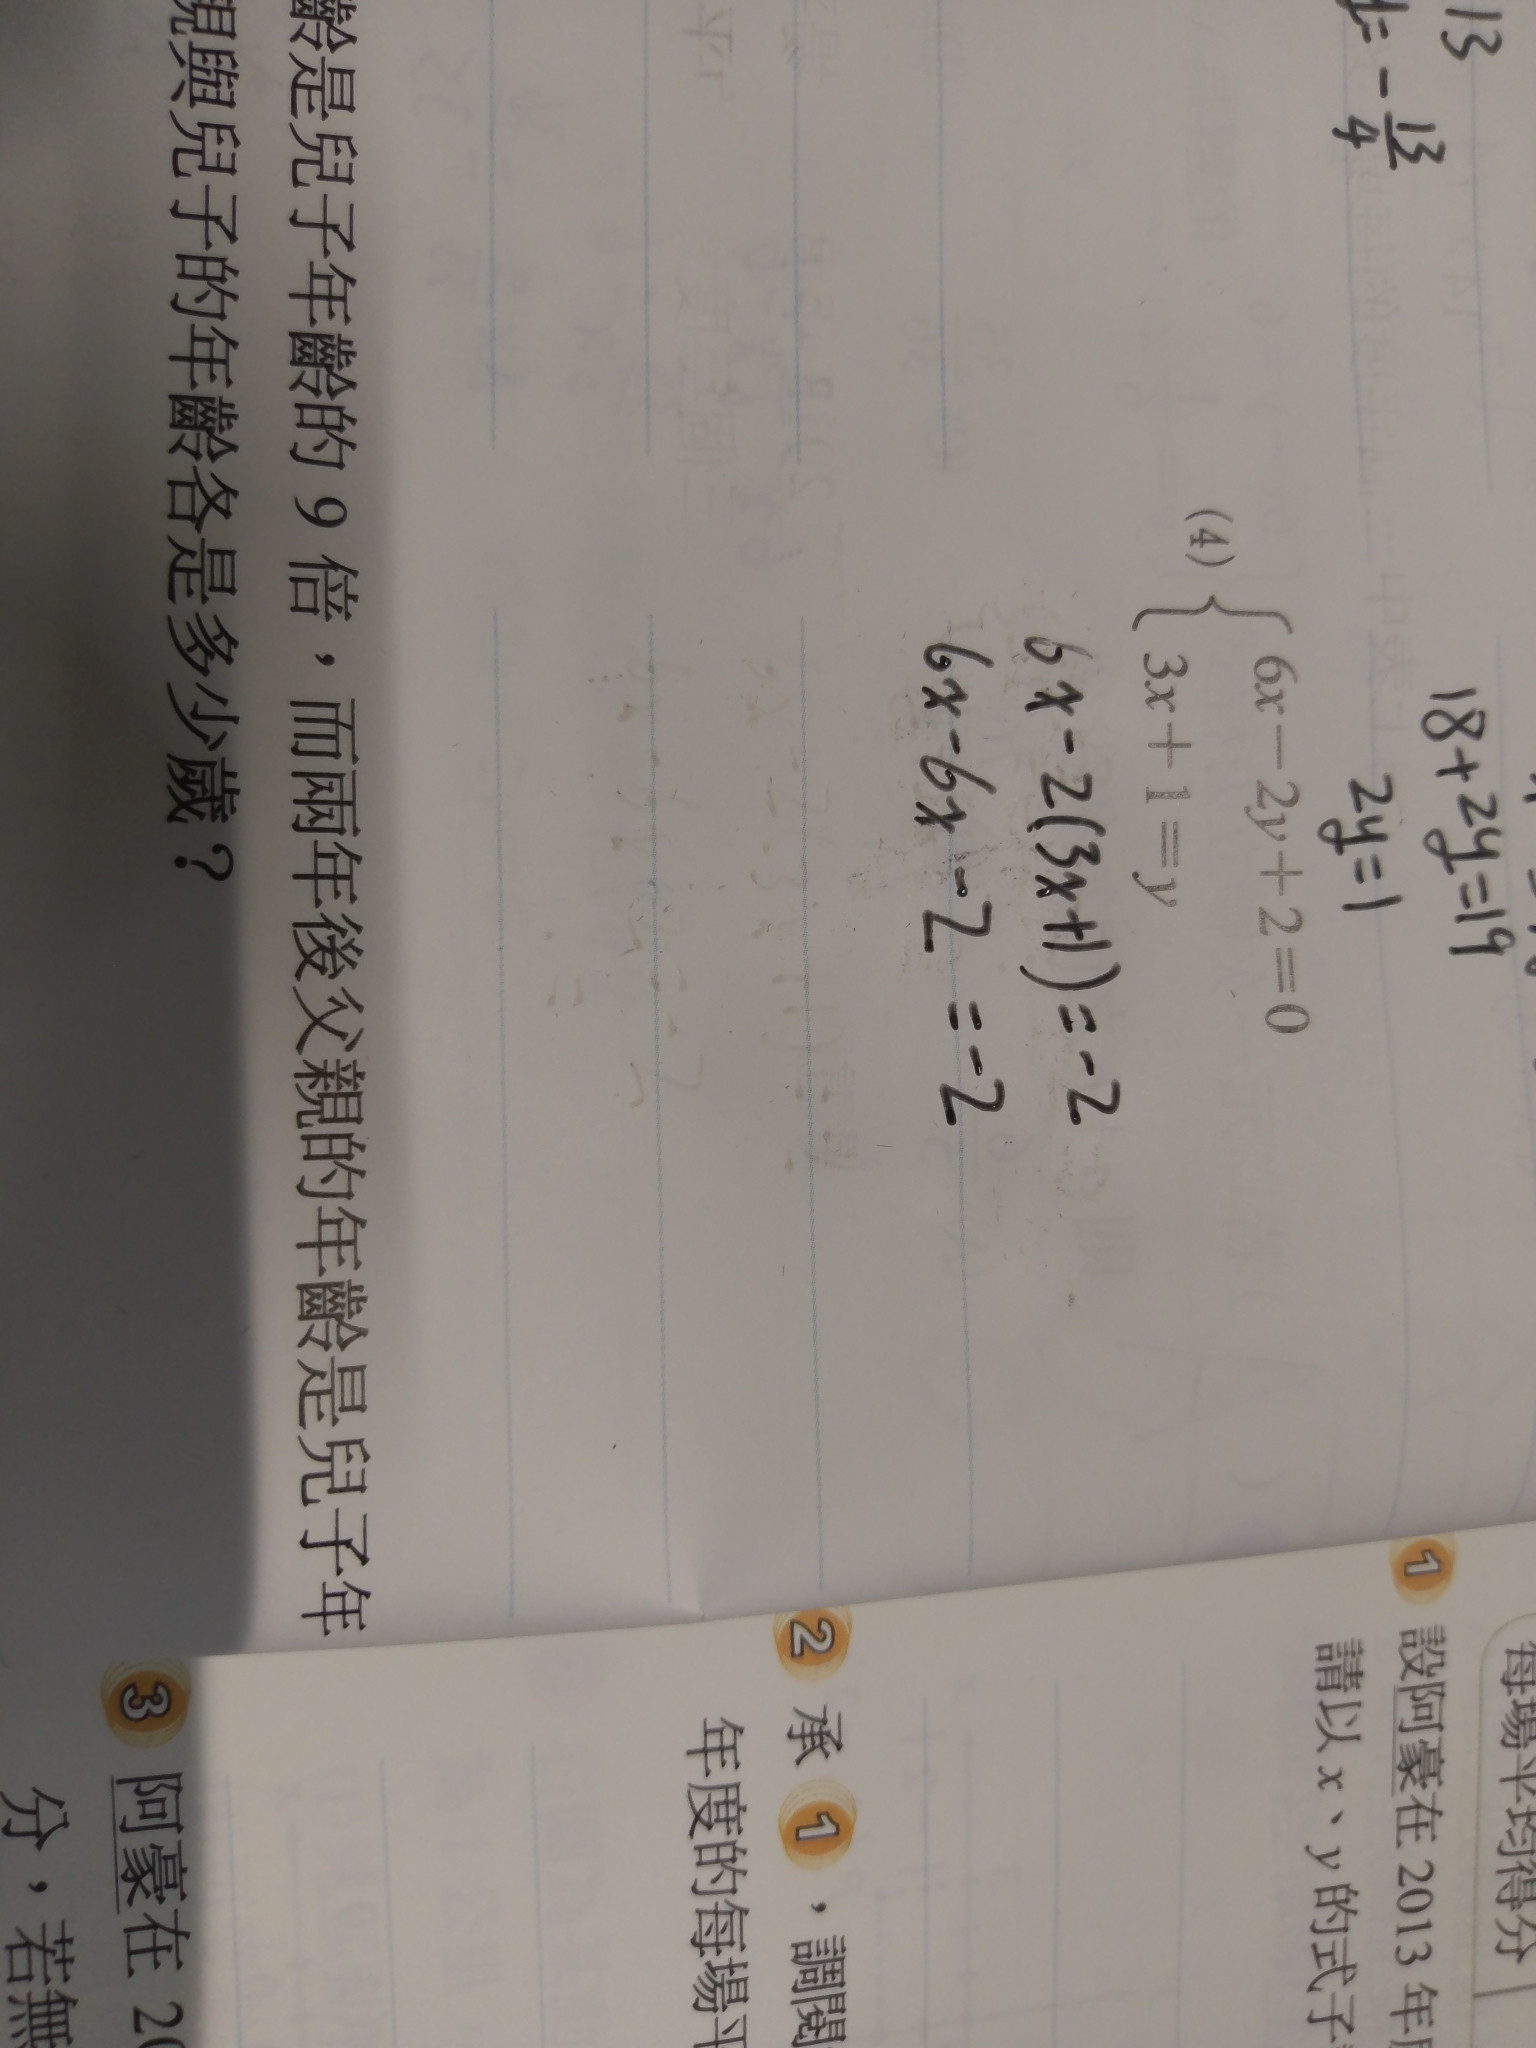 13
= -13/4
18+2y=19
2y=1
(4) { 6x-2y+2=0
3x+1=y
6x-2(3x+1)=-2
6x-6x-2=-2
齡是兒子年齡的 9 倍，而兩年後父親的年齡是兒子年
與兒子的年齡各是多少歲？
每場平均得分
1 設阿豪在 2013 年
請以 x、y 的式子
2 承 1 ，調閱
年度的每場平
3 阿豪在 20
分，若無